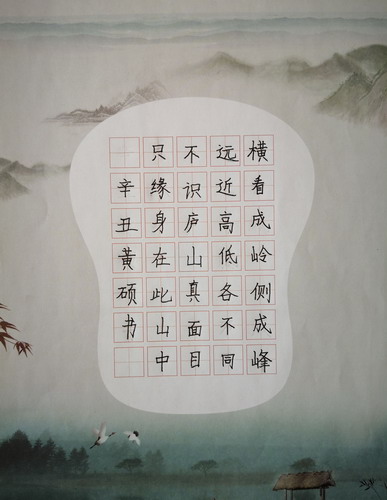 横看成岭侧成峰
远近高低各不同
不识庐山真面目
只缘身在此山中
辛丑黄硕书